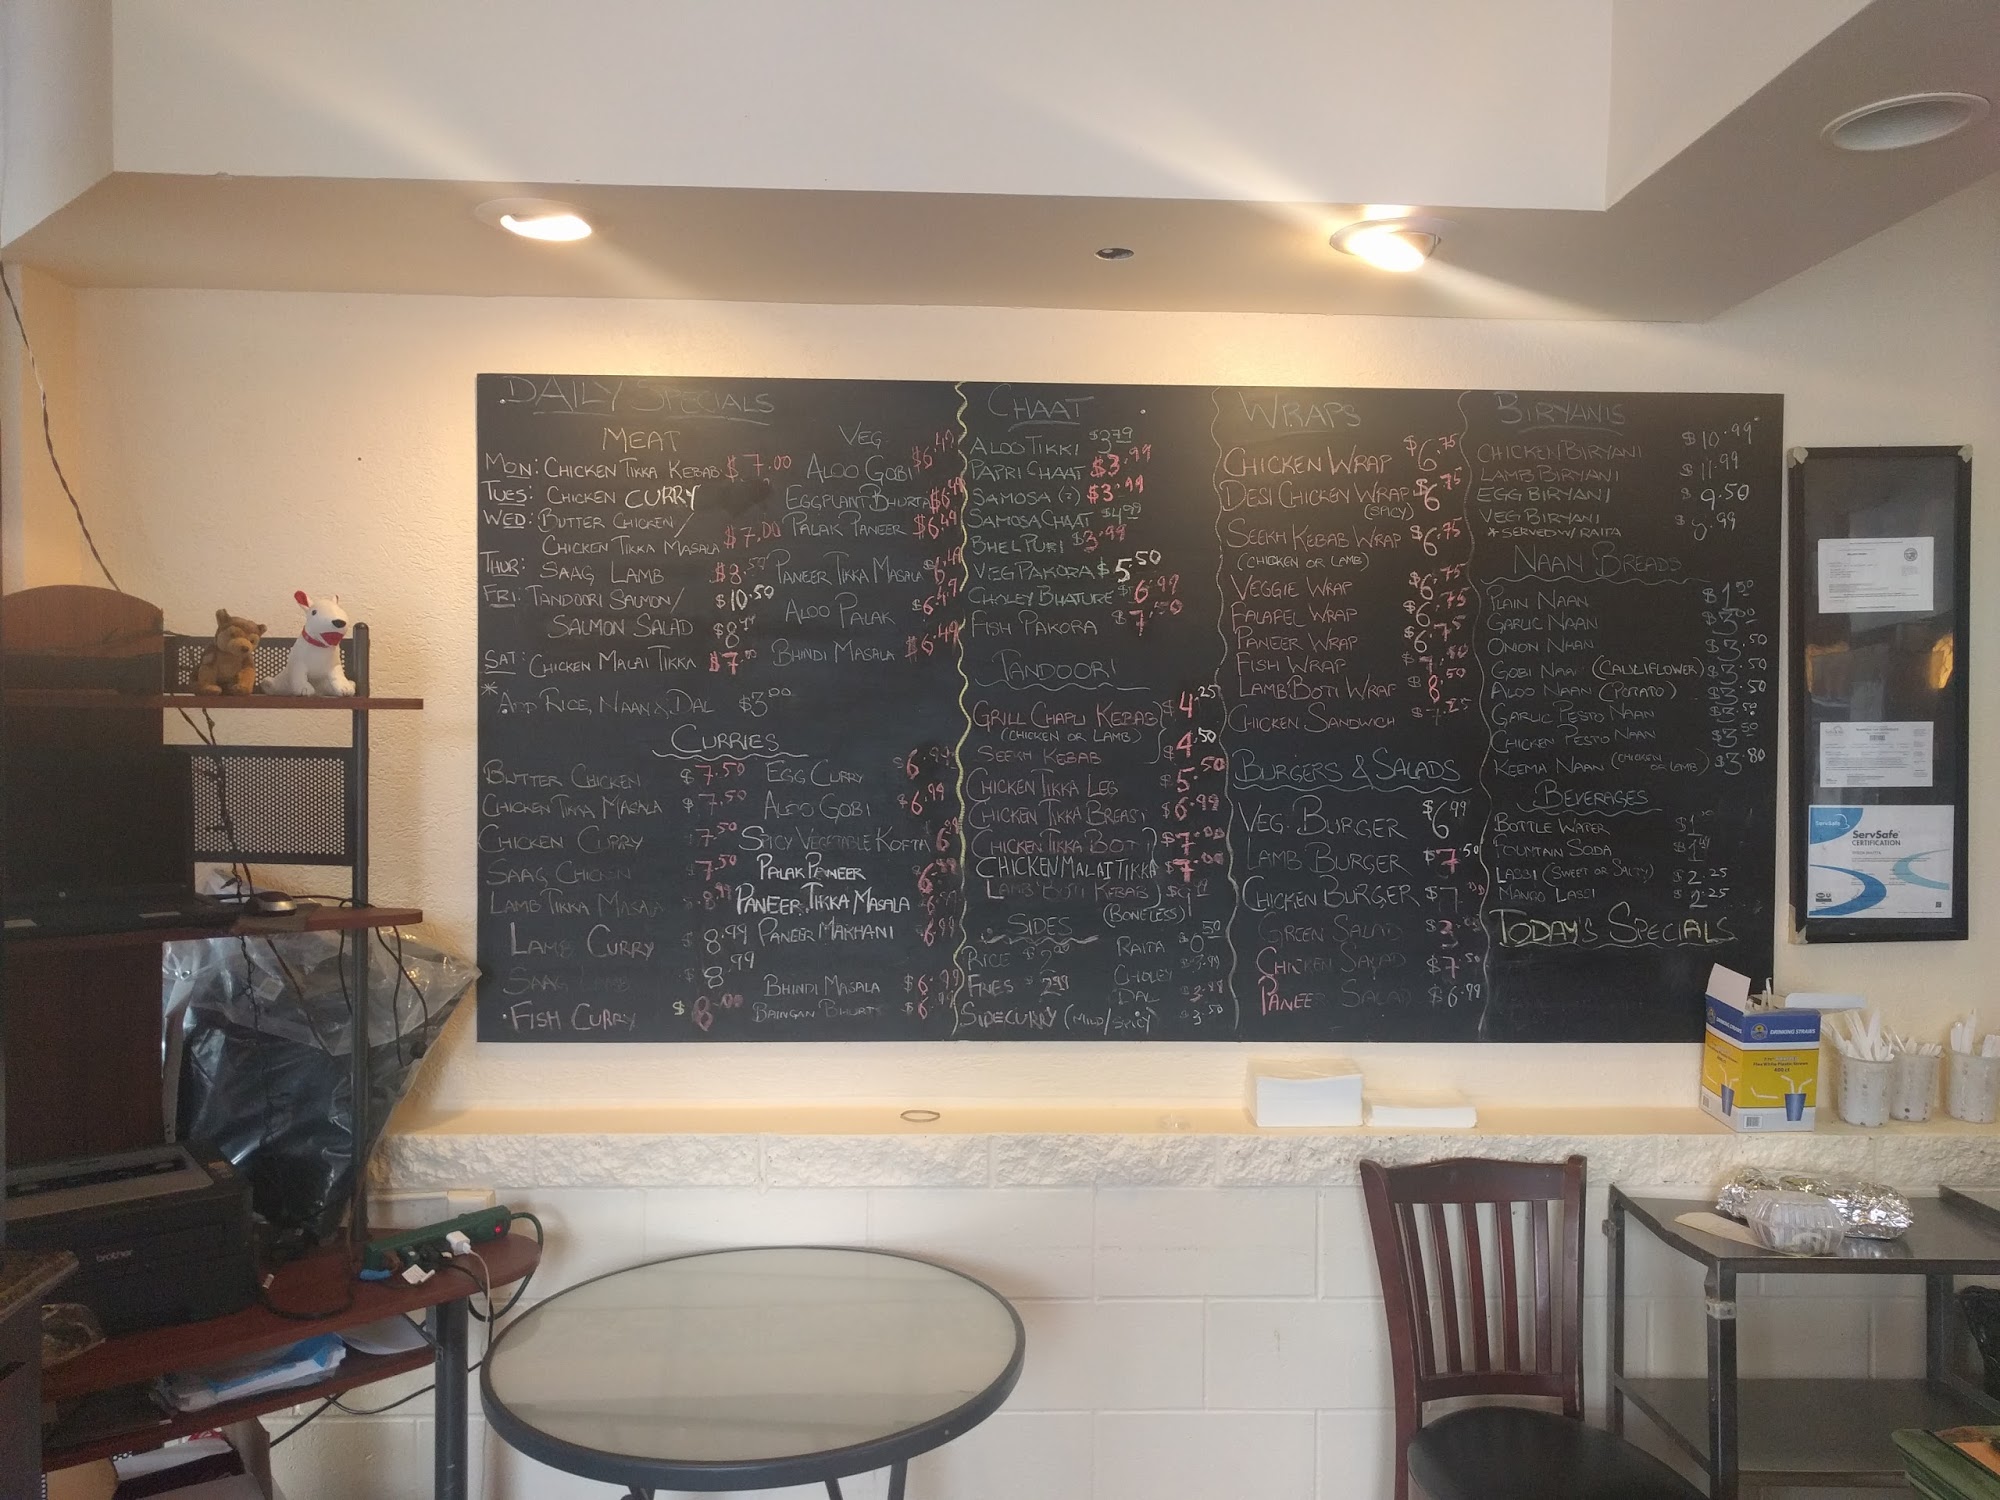 DAILY SPECIALS
MEAT
MON: CHICKEN TIKKA KEBAB $7.00
TUES: CHICKEN CURRY
WED: BUTTER CHICKEN/
CHICKEN TIKKA MASALA $7.00
THUR: SAAG LAMB
FRI: TANDOORI SALMON/ $10.50
SALMON SALAD
SAT: CHICKEN MALAI TIKKA
* ADD RICE, NAAN & DAL $3.00
VEG
ALOO GOBI $6.49
EGGPLANT BHURTA $6.49
PALAK PANEER $6.49
PANEER TIKKA MASALA
ALOO PALAK $6.49
BHINDI MASALA $6.49
CURRIES
BUTTER CHICKEN $7.50
CHICKEN TIKKA MASALA $7.50
CHICKEN CURRY 7.50
SAAG CHICKEN 7.50
LAMB TIKKA MASALA 8.99
LAMB CURRY $8.99
SAAG LAMB $8.99
FISH CURRY $8.00
EGG CURRY
ALOO GOBI $6.99
SPICY VEGETABLE KOFTA
PALAK PANEER 6.99
PANEER TIKKA MASALA 6.99
PANEER MAKHANI 6.99
BHINDI MASALA $6.99
BAINGAN BHURTA
CHAAT
ALOO TIKKI $3.79
PAPRI CHAAT $3.99
SAMOSA (2) $3.99
SAMOSA CHAAT $4.99
BHEL PURI $3.99
VEG PAKORA $5.50
CHOLEY BHATURE $6.99
FISH PAKORA $7.50
TANDOORI
GRILL CHAPLI KEBAB $4.25
(CHICKEN OR LAMB)
SEEKH KEBAB $4.50
CHICKEN TIKKA LEG $5.50
CHICKEN TIKKA BREAST $6.99
CHICKEN TIKKA BOTI $7.00
CHICKEN MALAI TIKKA $7.00
LAMB BOTI KEBAB
(BONELESS)
SIDES
RICE $2.00
FRIES $2.99
SIDE CURRY (MILD/SPICY) 3.50
RAITA $0.50
CHOLEY
DAL
WRAPS
CHICKEN WRAP $6.75
DESI CHICKEN WRAP $6.75
(SPICY)
SEEKH KEBAB WRAP $6.75
(CHICKEN OR LAMB)
VEGGIE WRAP $6.75
FALAFEL WRAP $6.75
PANEER WRAP $6.75
FISH WRAP
LAMB BOTI WRAP $8.50
CHICKEN SANDWICH
BURGERS & SALADS
VEG. BURGER $6.99
LAMB BURGER $7.50
CHICKEN BURGER
GREEN SALAD
CHICKEN SALAD $7.50
PANEER SALAD $6.99
BIRYANIS
CHICKEN BIRYANI $10.99
LAMB BIRYANI $11.99
EGG BIRYANI $9.50
VEG BIRYANI
*SERVED W/ RAITA
NAAN BREADS
PLAIN NAAN $1.50
GARLIC NAAN $3.00
ONION NAAN $3.50
GOBI NAAN (CAULIFLOWER) $3.50
ALOO NAAN (POTATO) $3.50
GARLIC PESTO NAAN $3.50
CHICKEN PESTO NAAN $3.50
KEEMA NAAN (CHICKEN OR LAMB) $3.80
BEVERAGES
BOTTLE WATER
FOUNTAIN SODA
LASSI (SWEET OR SALTY) $2.25
MANGO LASSI $2.25
TODAY'S SPECIALS
ServSafe
ServSafe
CERTIFICATION
DRINKING STRAWS
DRINKING STRAWS
brother